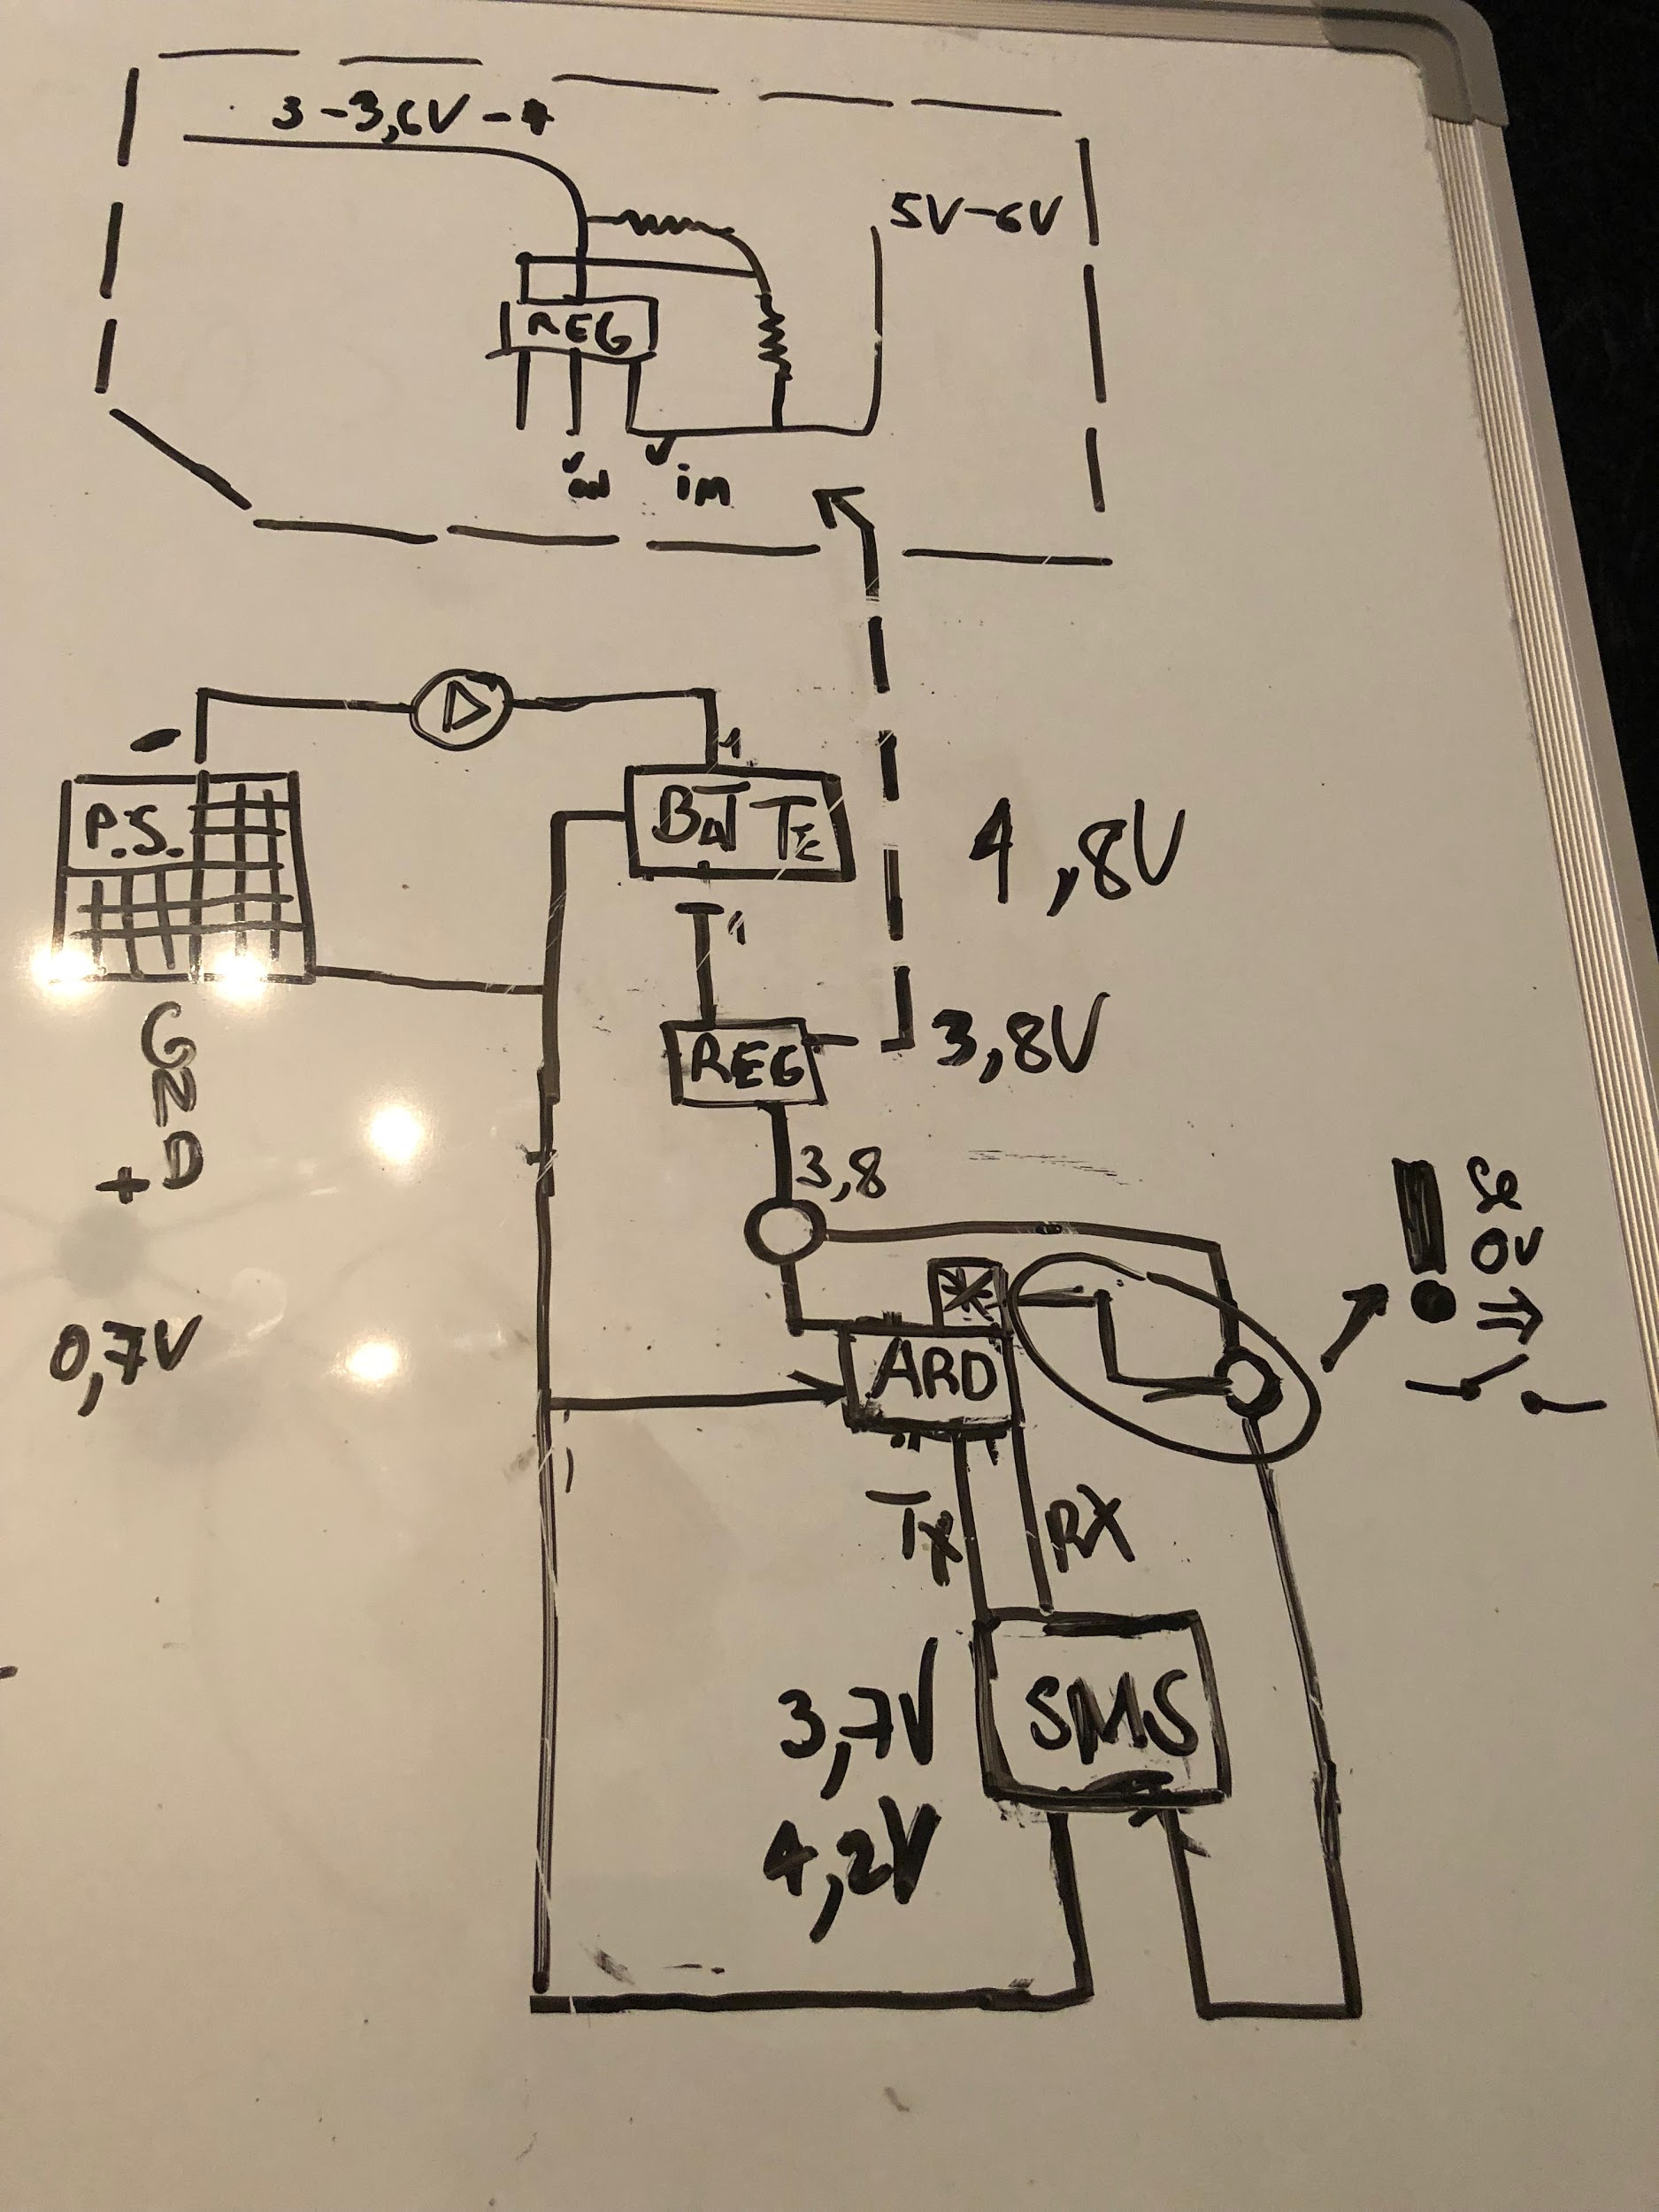 3-3,6V-4
5V-6V
REG
Vin
P.S.
BATTE
4,8V
REG
3,8V
3,8
0,7V
+
*
ARD
Se
0V
⇒
Tx
RX
SMS
3,7V
4,2V